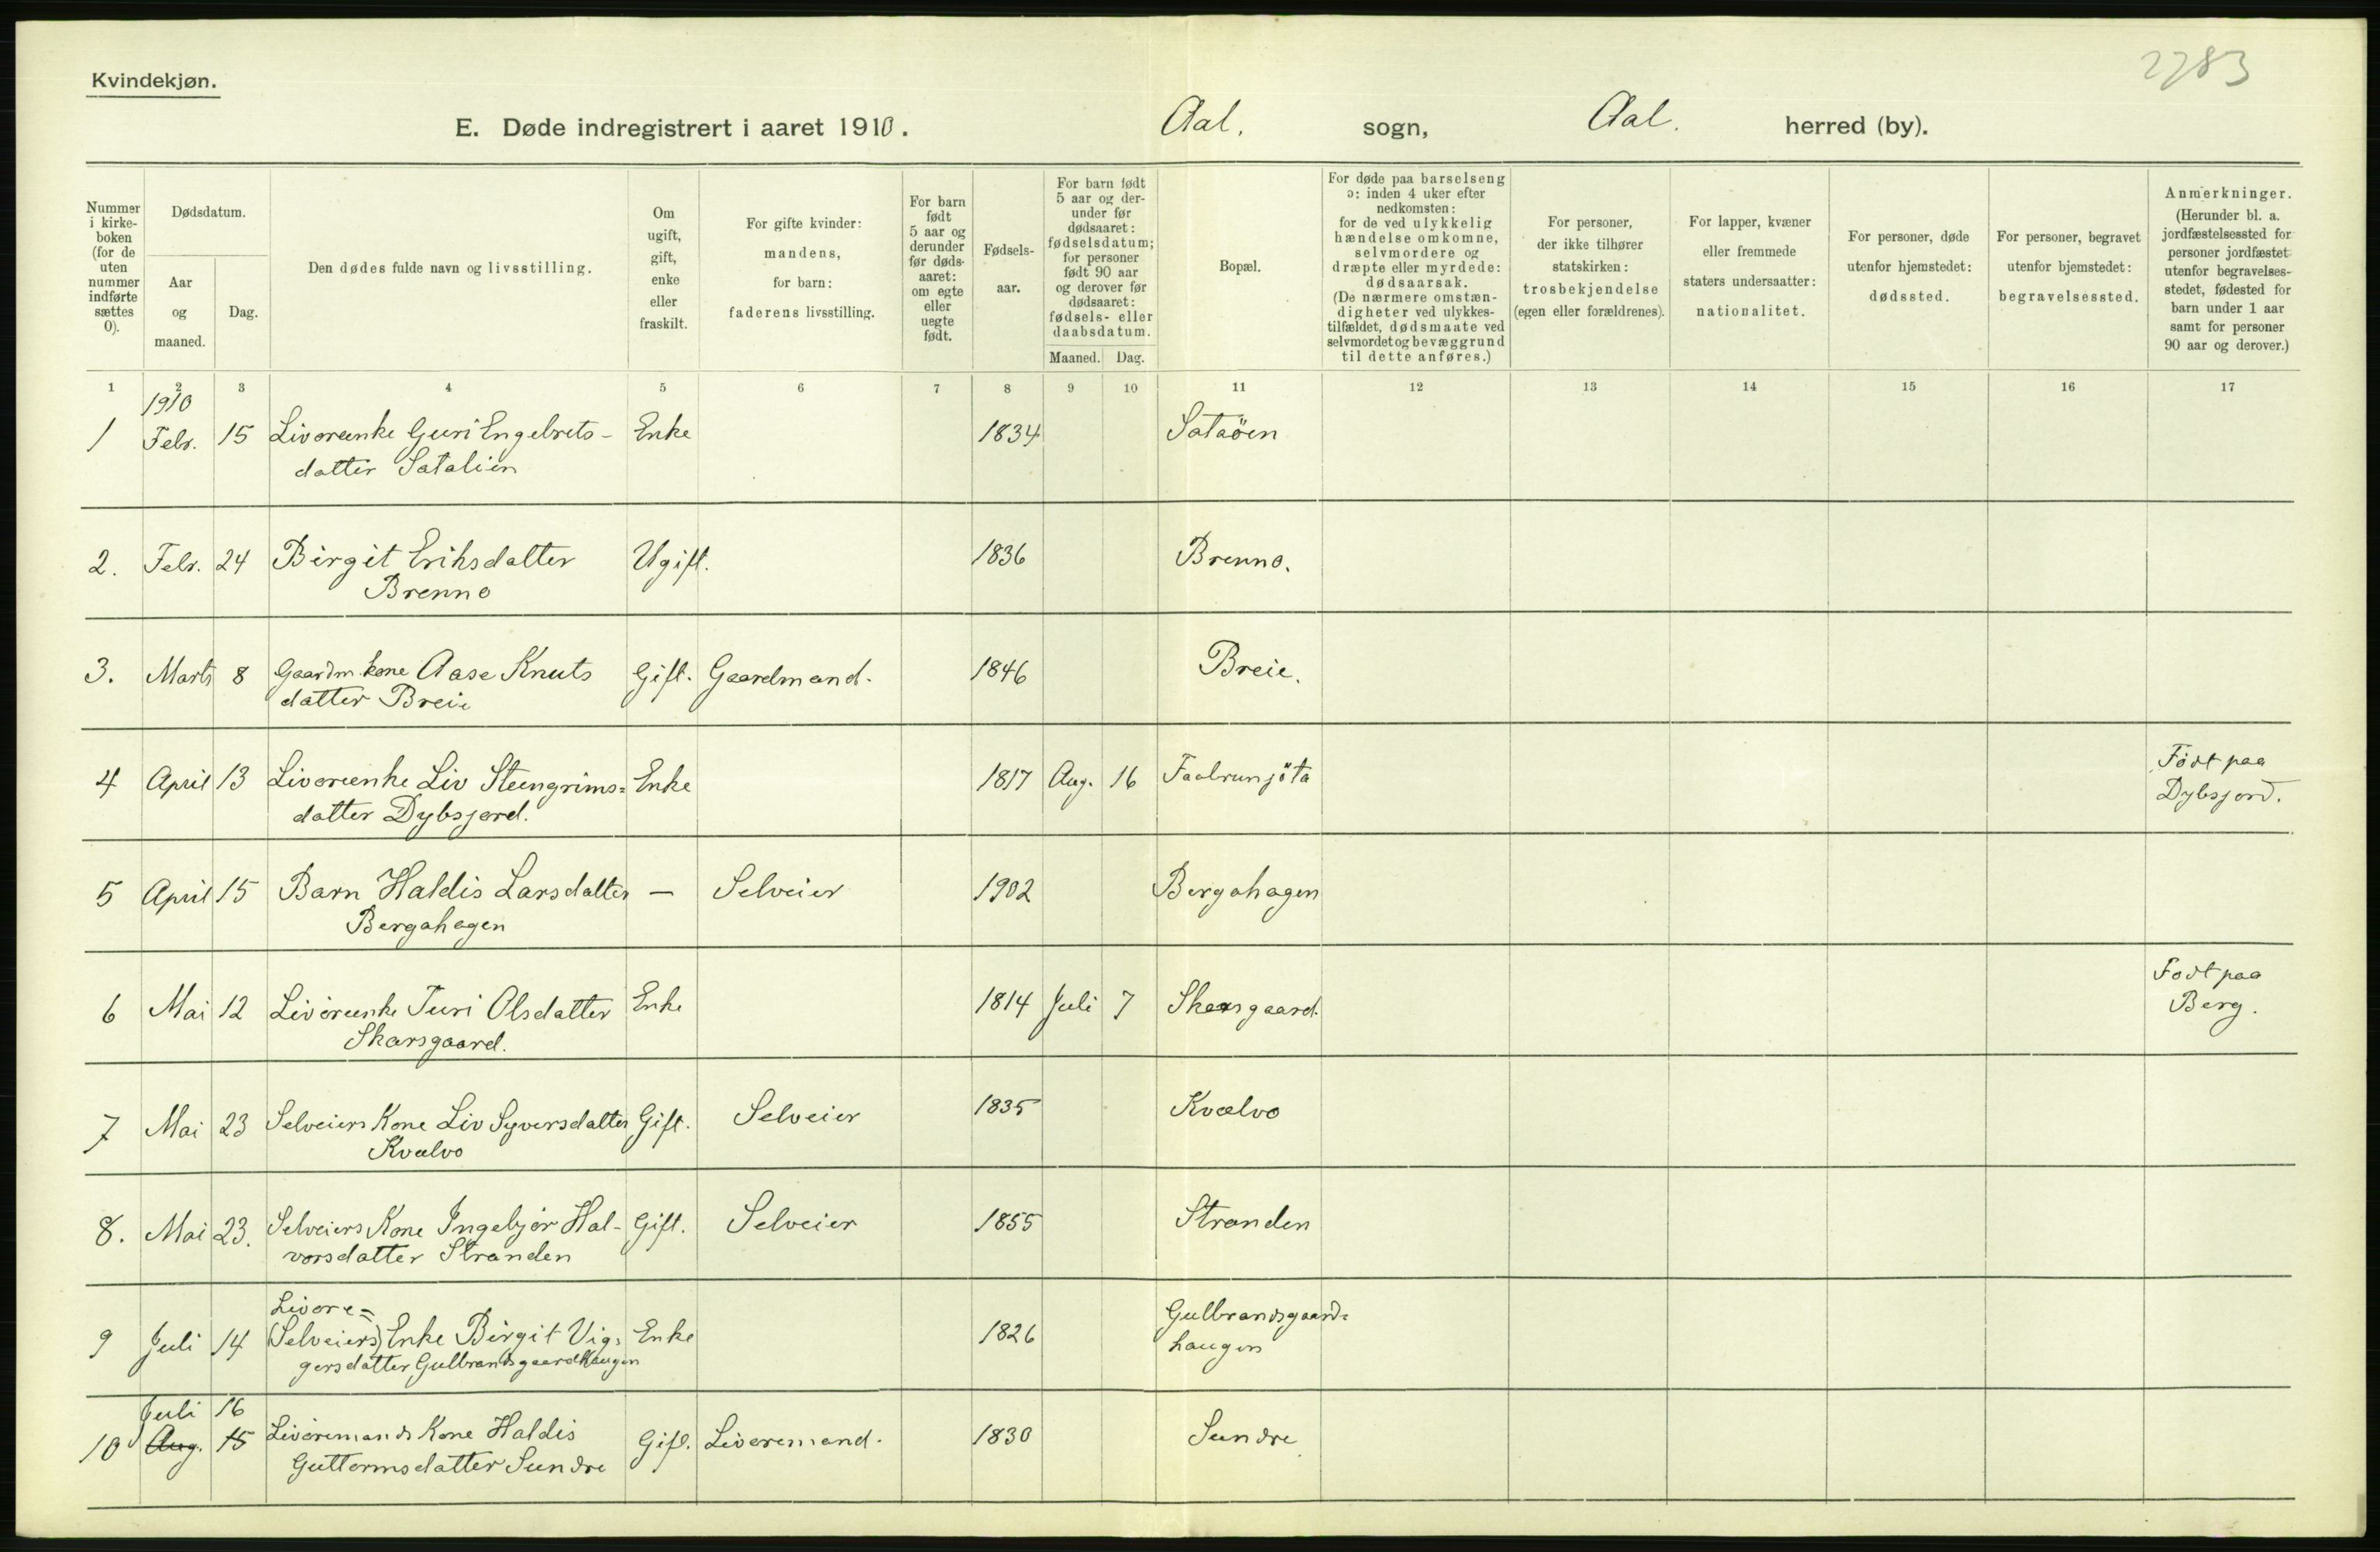 2783
Kvindekjøn.
E. Døde indregistrert i aaret 1910. Aal. sogn, Aal. herred (by).
Nummer i kirke-boken (for de uten nummer indførte sættes 0).
Dødsdatum.
Aar og maaned.
Dag.
Den dødes fulde navn og livsstilling.
Om ugift, gift, enke eller fraskilt.
For gifte kvinder: mandens, for barn: faderens livsstilling.
For barn født 5 aar og derunder før døds-aaret: om egte eller uegte født.
Fødsels-aar.
For barn født 5 aar og der-under før dødsaaret: fødselsdatum; for personer født 90 aar og derover før dødsaaret: fødsels- eller daabsdatum.
Maaned. Dag.
Bopæl.
For døde paa barselseng ɔ: inden 4 uker efter nedkomsten: for de ved ulykkelig hændelse omkomne, selvmordere og dræpte eller myrdede: dødsaarsak. (De nærmere omstæn-digheter ved ulykkes-tilfældet, dødsmaate ved selvmordet og bevæggrund til dette anføres.)
For personer, der ikke tilhører statskirken: trosbekjendelse (egen eller forældrenes).
For lapper, kvæner eller fremmede staters undersaatter: nationalitet.
For personer, døde utenfor hjemstedet: dødssted.
For personer, begravet utenfor bjemstedet: begravelsessted.
Anmerkninger. (Herunder bl. a. jordfæstelsessted for personer jordfæstet utenfor begravelses-stedet, fødested for barn under 1 aar samt for personer 90 aar og derover.)
1 2 3 4 5 6 7 8 9 10 11 12 13 14 15 16 17
1910
1 Febr. 15 Livøreenke Guri Engebrets- Enke 1834 Sataöen
datter Satalien
2. Febr. 24 Birgit Eriksdatter Ugift. 1836 Brenno.
Brenno
3. Marts 8 Gaardm. kone Aase Knuts Gift. Gaardmand. 1846 Breie.
datter Breie
4 April 13 Livøreenke Liv Steengrims= Enke 1817 Aug. 16 Faabrunjöta Födt paa
datter Dybsjord. Dybsjord.
5 April 15 Barn Haldis Larsdatter — Selveier 1902 Bergahagen
Bergahagen
6 Mai 12 Livøreenke Turi Olsdatter Enke 1814 Juli 7 Skarsgaard. Født paa
Skarsgaard. Berg.
7 Mai 23 Selveiers Kone Liv Syversdatter Gift. Selveier 1835 Kvælvo
Kvælvo
8. Mai 23. Selveiers Kone Ingebjør Hal- Gift. Selveier 1855 Stranden
vorsdatter Stranden
Livøre=
9 Juli 14 (Selveiers) Enke Birgit Vig= Enke 1826 Gulbrandsgaard=
gersdatter Gulbrandsgaardhaugen haugen
Juli 16
10 Aug. 15 Livøremands Kone Haldis Gift. Livøremand. 1830 Sundre
Guttormsdatter Sundre